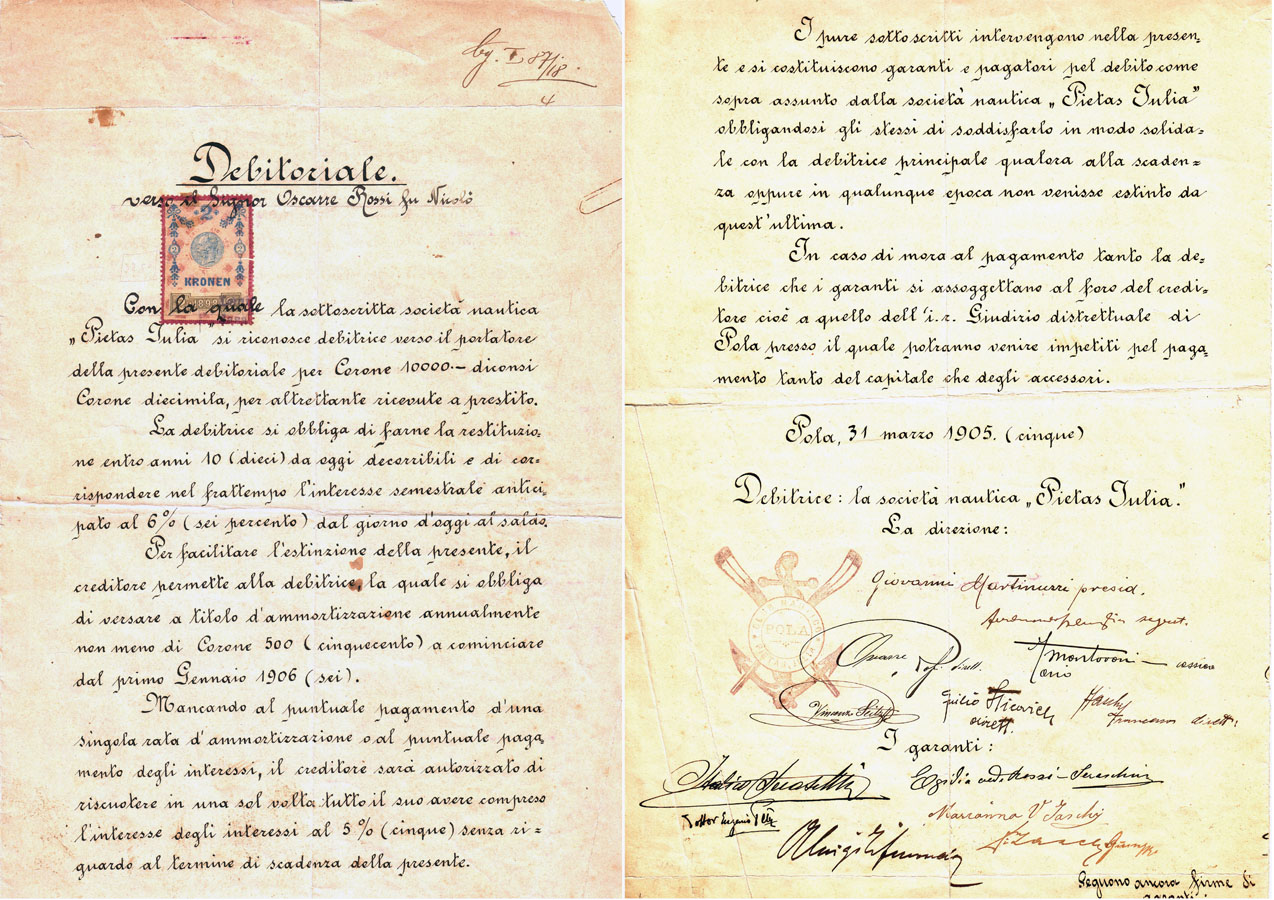 Debitoriale.
verso il Signor Oscarre Rossi fu Nicolò
2
KRONEN
1898
Con la quale la sottoscritta società nautica
„Pietas Iulia" si riconosce debitrice verso il portatore
della presente debitoriale per Corone 10000.— diconsi
Corone diecimila, per altrettante ricevute a prestito.
La debitrice si obbliga di farne la restituzio=
ne entro anni 10 (dieci) da oggi decorribili e di cor=
rispondere nel frattempo l'interesse semestrale antici=
pato al 6% (sei percento) dal giorno d'oggi al saldo.
Per facilitare l'estinzione della presente, il
creditore permette alla debitrice, la quale si obbliga
di versare a titolo d'ammortizzazione annualmente
non meno di Corone 500 (cinquecento) a cominciare
dal primo Gennaio 1906 (sei).
Mancando al puntuale pagamento d'una
singola rata d'ammortizzazione o al puntuale paga=
mento degli interessi, il creditore sarà autorizzato di
riscuotere in una sol volta tutto il suo avere compreso
l'interesse degli interessi al 5% (cinque) senza ri=
guardo al termine di scadenza della presente.
I pure sottoscritti intervengono nella presen=
te e si costituiscono garanti e pagatori pel debito come
sopra assunto dalla società nautica „Pietas Iulia"
obbligandosi gli stessi di soddisfarlo in modo solida=
le con la debitrice principale qualora alla scaden=
za oppure in qualunque epoca non venisse estinto da
quest'ultima.
In caso di mora al pagamento tanto la de=
bitrice che i garanti si assoggettano al foro del credi=
tore cioè a quello dell'i. r. Giudizio distrettuale di
Pola presso il quale potranno venire impetiti pel paga=
mento tanto del capitale che degli accessori.
Pola, 31 marzo 1905. (cinque)
Debitrice: la società nautica „Pietas Iulia."
La direzione:
Giovanni presid.
POLA
Mario
Giulio
dirett.
Francesco dirett.
I garanti:
Egidia ved. Rossi
Dottor Eugenio
Marianna V.
Seguono ancora firme di
garanti: